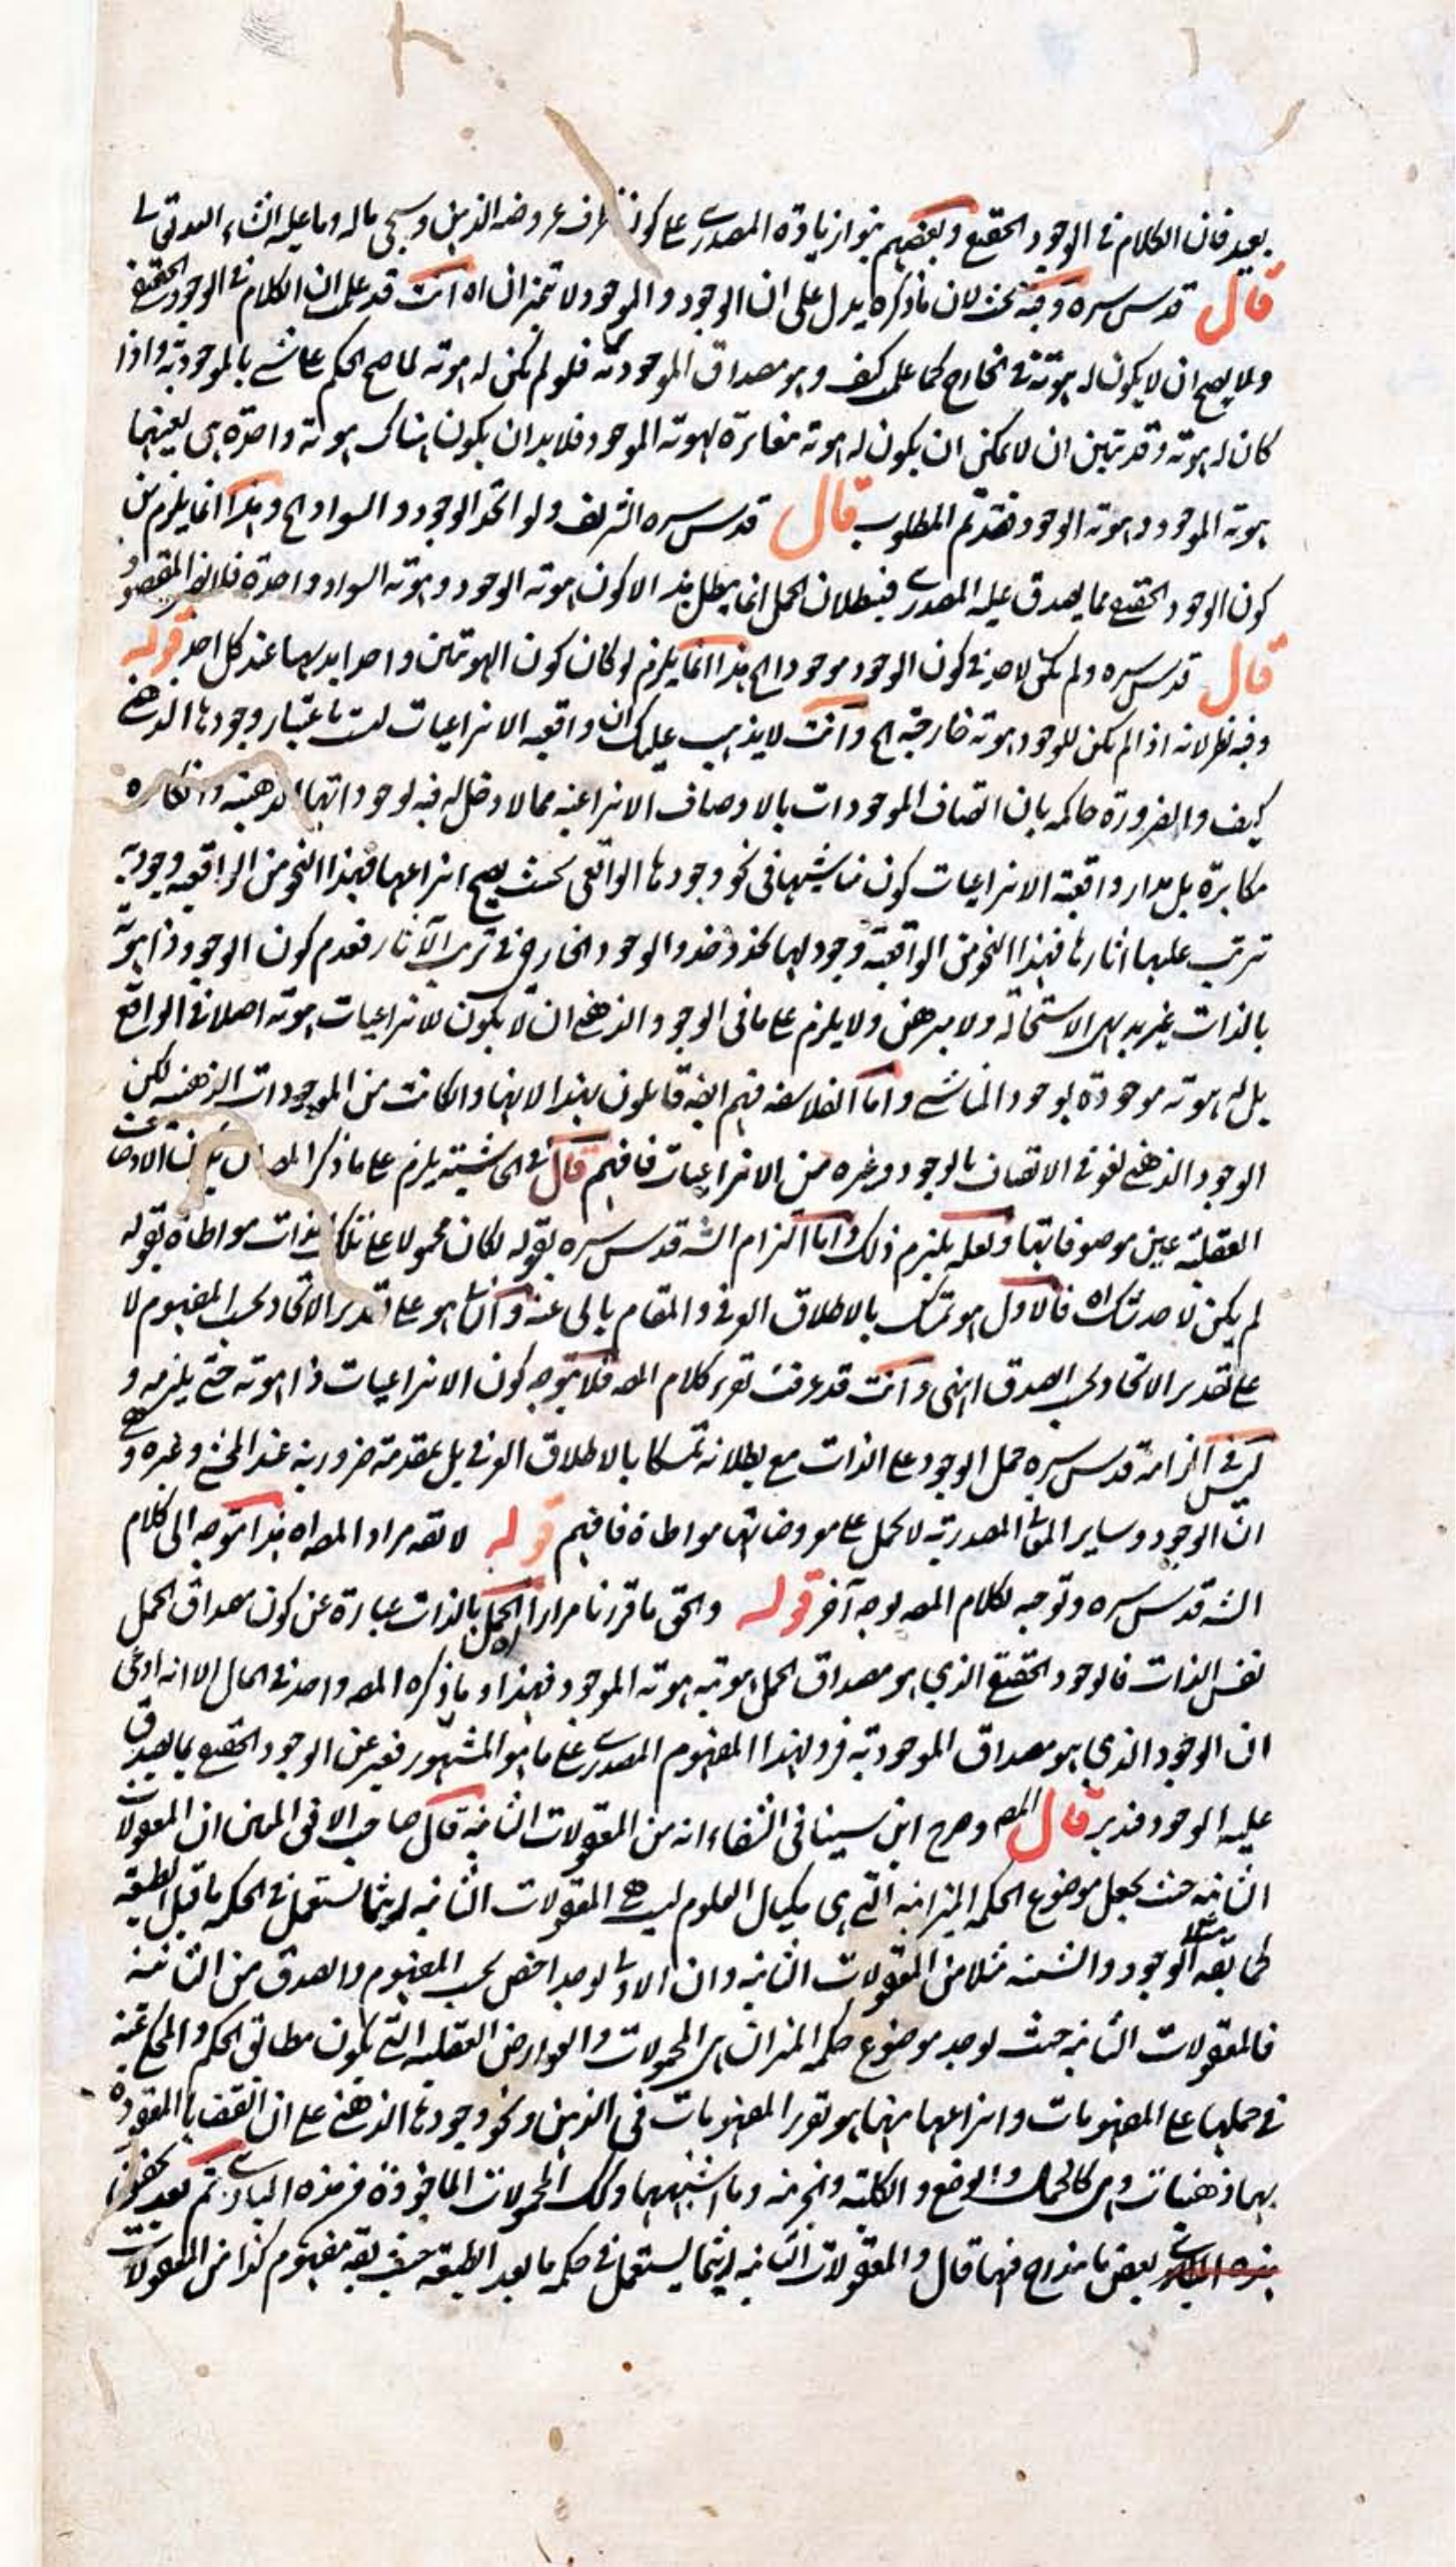 بعيد فان الكلام في الوجود الحقيقي وبعضهم جوازيادة المصدري على كون ظرف عروضه الذهن وسيجي ماله وما عليه انشاء الله تعالى
قال قدس سره وفيه بحث لان ما ذكره يدل على ان الوجود والموجود لا تمتيز ان اه انت قد علمت ان الكلام في الوجود الحقيقي
ولا يصح ان لا يكون له هوية في الخارج كما علمت كيف وهو مصداق الموجودية فلو لم يكن له هوية لما صح الحكم على شي بالموجودية واذا
كان له هوية وقد تبين ان لا يمكن ان يكون له هوية مغايرة لهوية الموجود فلا بد ان يكون هناك هوية واحدة هي بعينها
هوية الموجود وهوية الوجود فقد تم المطلوب قال قدس سره الشريف ولو اتحد الوجود والسواد اه وهذا انما يلزم من
كون الوجود الحقيقي مما يصدق عليه المصدري فبطلان الحمل انما يبطل هذا لا كون هوية الوجود وهوية السواد واحدة فلا يضر المقصود
قال قدس سره ولم يكن لاحد في كون الوجود موجودا اه هذا انما يلزم لو كان كون الهويتين واحدا بديهيا عند كل احد قوله
وفيه نظر لانه اذا لم يكن للوجود هوية خارجية اه وانت لا يذهب عليك ان واقعية الانتزاعيات ليست باعتبار وجودها الذهني
كيف والضرورة حاكمة بان اتصاف الموجودات بالاوصاف الانتزاعية مما لا دخل فيه لوجوداتها الذهنية وانكاره
مكابرة بل مدار واقعية الانتزاعيات كون مناشيها في نحو وجودها الواقعي بحيث يصح انتزاعها فهذا النحو من الواقعية وجودية
تترتب عليها اثارها فهذا النحو من الواقعية وجود لها يحذو حذو الوجود الخارجي في ترتب الآثار فعدم كون الوجود ذا هوية
بالذات غير بديهي الاستحالة ولا مبرهن ولا يلزم على ما في الوجود الذهني ان لا يكون للانتزاعيات هوية اصلا في الواقع
بل له هوية موجودة بوجود المناشي واما الفلاسفة فهم ايضه قايلون بهذا لانها وان كانت من الموجودات الذهنية لكن
الوجود الذهني لغو في الاتصاف بالوجود وغيره من الانتزاعيات فافهم قال في الحاشية يلزم على ما ذكر المص ان يكون الاوصاف
العقلية عين موصوفاتها ولعله يلتزم ذلك واما التزام الشه قدس سره بقوله لكان محمولا على تلك الذات مواطاة بقوله
لم يكن لاحد شك اه فالاول هو تمسك بالاطلاق العرفي والمقام يابى عنه والثاني هو على تقدير الاتحاد بحسب المفهوم لا
على تقدير الاتحاد بحسب الصدق انتهى وانت قد عرفت تقرير كلام المص فلا يتوجه كون الانتزاعيات ذا هوية حتى يلزمه و
ليس في الزامه قدس سره حمل الوجود على الذات مع بطلانه تمسكا بالاطلاق العرفي بل بمقدمة ضرورية عند المحشي وغيره وهي
ان الوجود وساير المعاني المصدرية لا يحمل على معروضاتها مواطاة فافهم قوله لا تفه مراد المص اه هذا توجه الى كلام
الشه قدس سره وتوجيه لكلام المص بوجه آخر قوله والحق ما قررنا مرارا اه الحمل بالذات عبارة عن كون مصداق الحمل
نفس الذات فالوجود الحقيقي الذي هو مصداق الحمل هويته هوية الموجود فهذا وما ذكره المص واحد في المآل الا انه ادعى
ان الوجود الذي هو مصداق الموجودية فرد لهذا المفهوم المصدري على ما هو المشهور فعبر عن الوجود الحقيقي بما يصدق
عليه الوجود فتدبر قال المص وصرح ابن سينا في الشفاء انه من المعقولات الثانية قال صاحب الافق المبين ان المعقولات
الثانية حيث يجعل موضوع الحكمة الميزانية التي هي مكيال العلوم ليست هي المعقولات الثانية التي تستعمل في الحكمة ما قبل الطبيعة
كما يقه الوجود والشيئية مثلا من المعقولات الثانية وان الاولى لوجد اخص بحسب المفهوم والصدق من الثانية
فالمعقولات الثانية حيث يوجد موضوع حكمة الميزان هي المحمولات والعوارض العقلية التي يكون مطابق الحكم والمحكي عنه
في حملها على المفهومات وانتزاعها منها هو تقرر المفهومات في الذهن ونحو وجودها الذهني على ان القضايا المعقودة
بها ذهنيات وهي كالحمل والوضع والكلية والجزئية وما اشبهها وتلك المحمولات الماخوذة من هذه المبادي ثم بعد
بعض ما فيها قال والمعقولات الثانية التي تستعمل في حكمة ما بعد الطبيعة حيث يقه مفهوم كذا من المعقولات